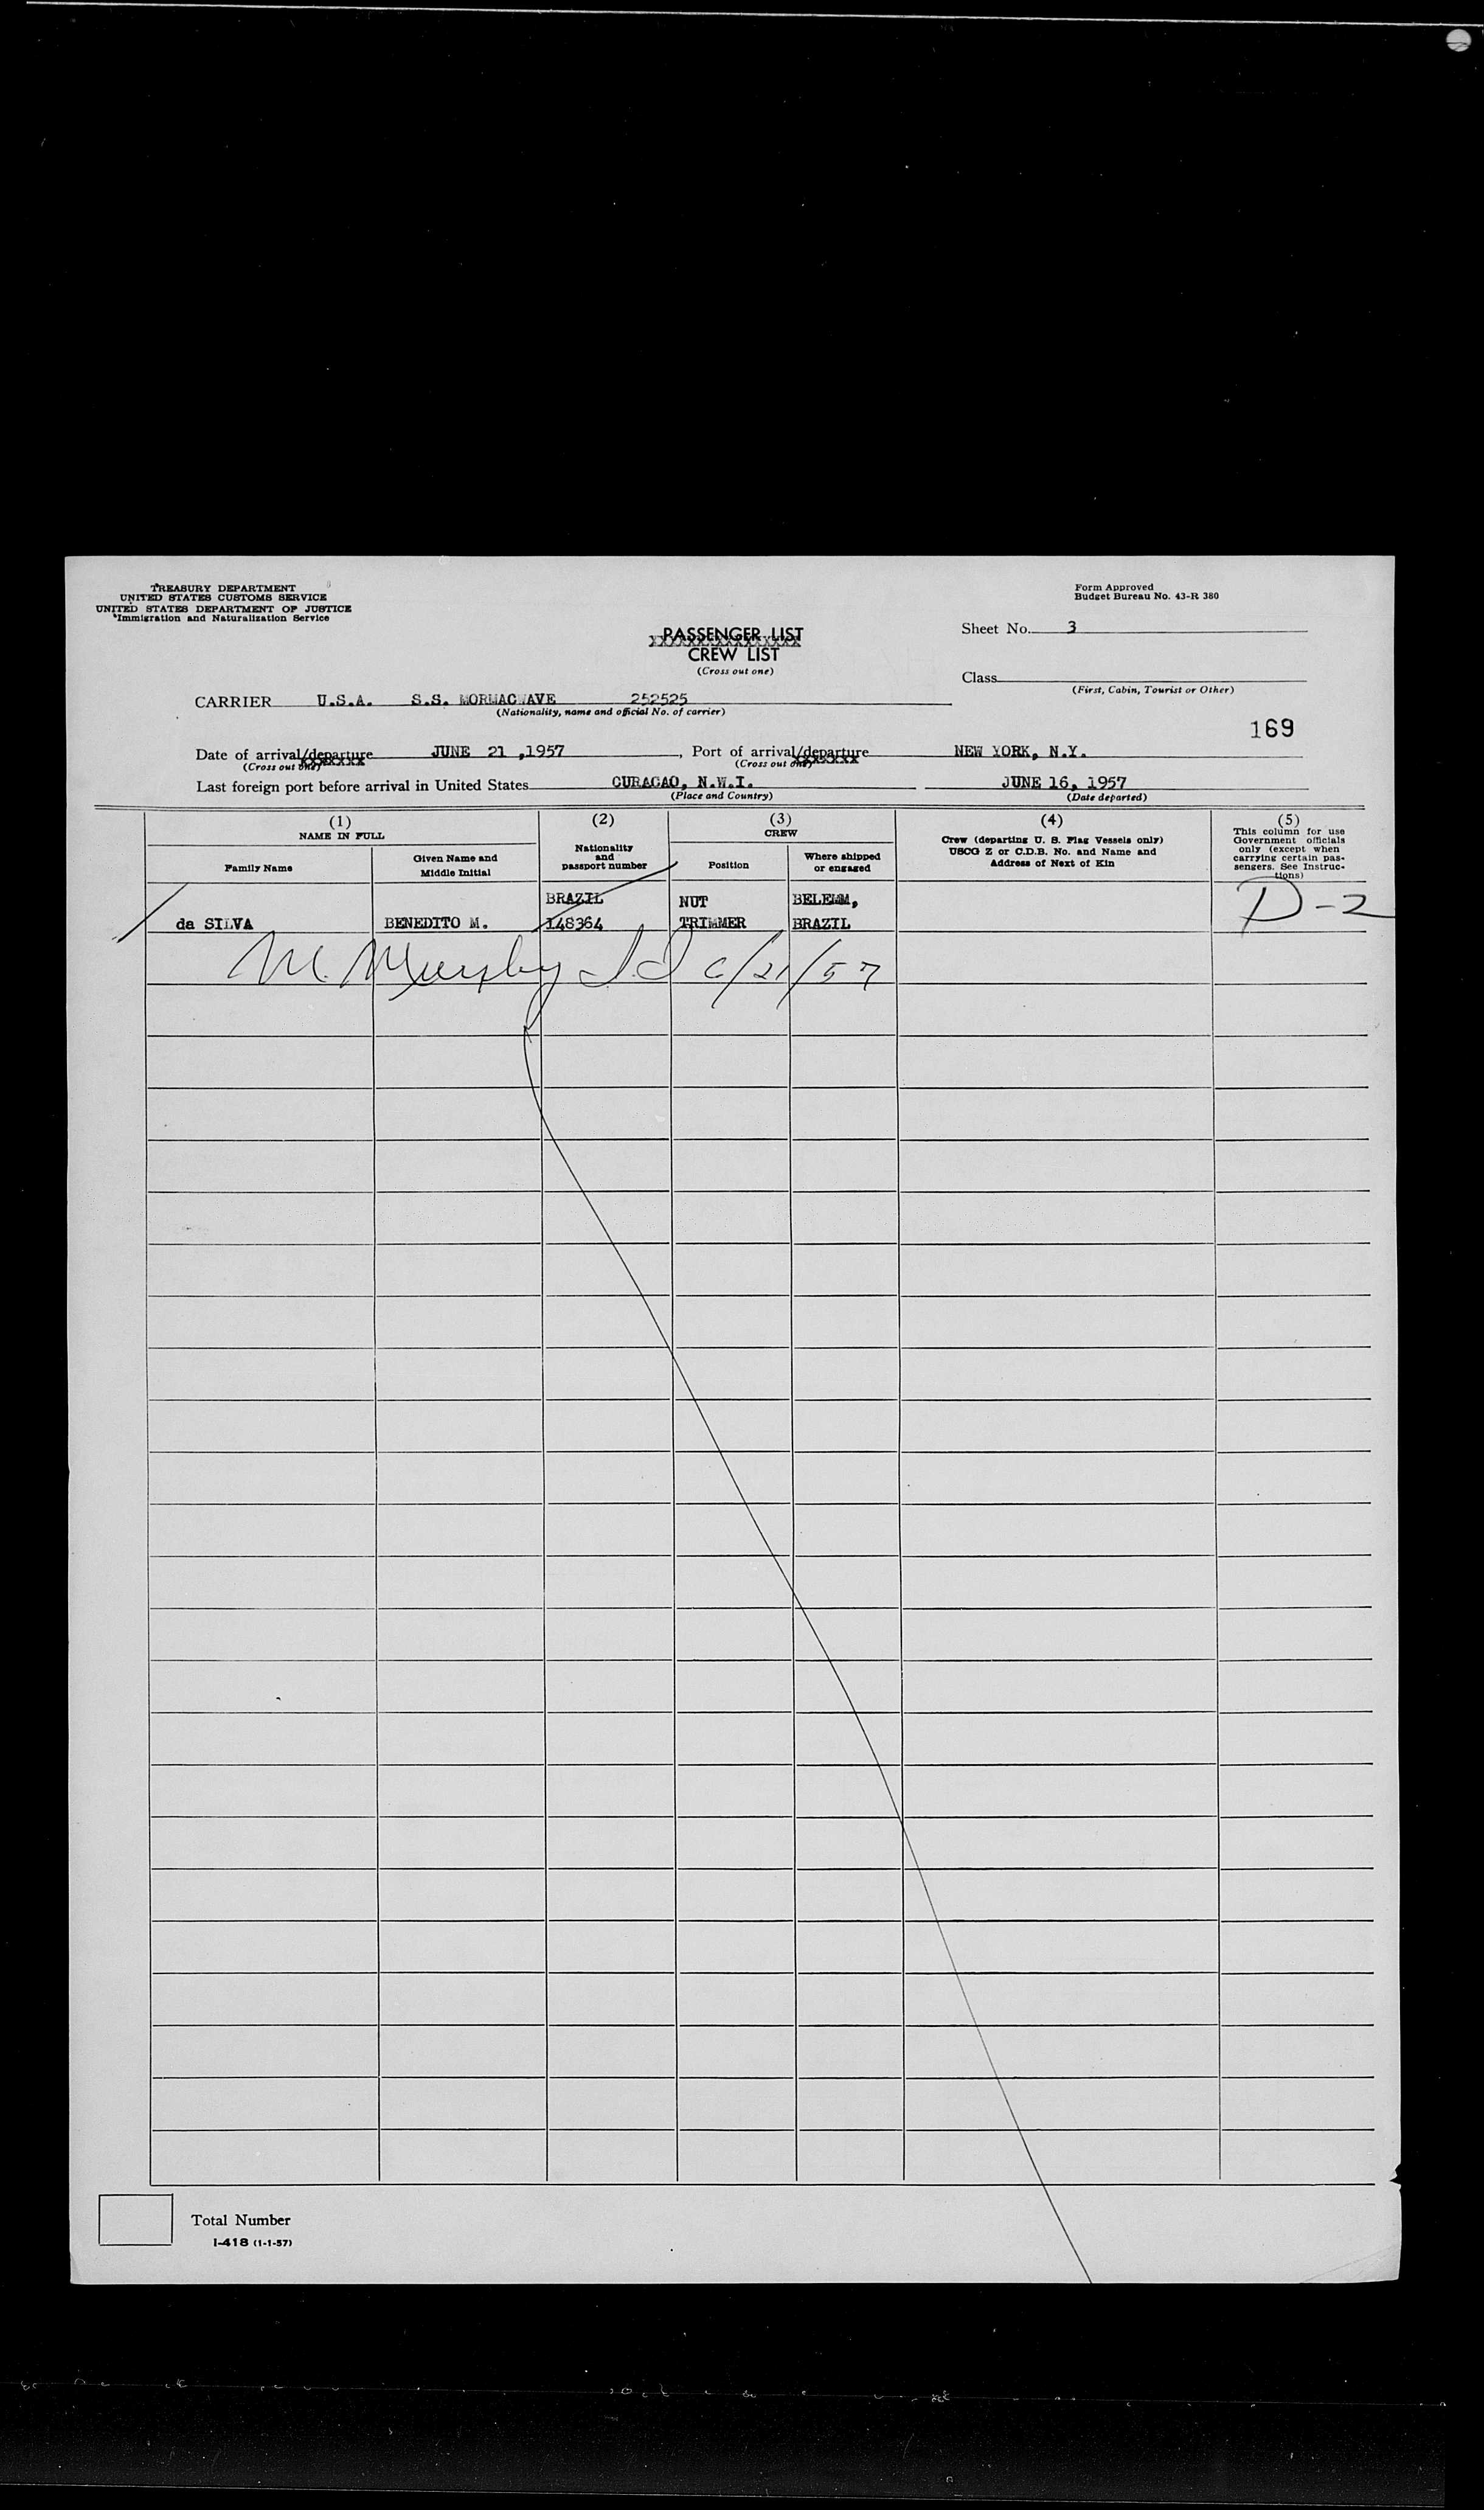 TREASURY DEPARTMENT
UNITED STATES CUSTOMS SERVICE
UNITED STATES DEPARTMENT OF JUSTICE
Immigration and Naturalization Service
Form Approved
Budget Bureau No. 43-R 380
PASSENGER LIST
CREW LIST
(Cross out one)
Sheet No. 3
Class
(First, Cabin, Tourist or Other)
CARRIER U.S.A. S.S. MORMACWAVE 252525
(Nationality, name and official No. of carrier)
169
Date of arrival/departure JUNE 21 ,1957, Port of arrival/departure NEW YORK, N.Y.
(Cross out one) (Cross out one)
Last foreign port before arrival in United States CURACAO, N.W.I. JUNE 16, 1957
(Place and Country) (Date departed)
(1) NAME IN FULL
Family Name
Given Name and Middle Initial
(2)
Nationality and passport number
(3) CREW
Position
Where shipped or engaged
(4)
Crew (departing U. S. Flag Vessels only)
USCG Z or C.D.B. No. and Name and
Address of Next of Kin
(5)
This column for use
Government officials
only (except when
carrying certain pas-
sengers. See Instruc-
tions)
BRAZIL NUT BELEMM, D-2
da SILVA BENEDITO M. 148364 TRIMMER BRAZIL
M. Murphy 6/21/57
Total Number
I-418 (1-1-57)